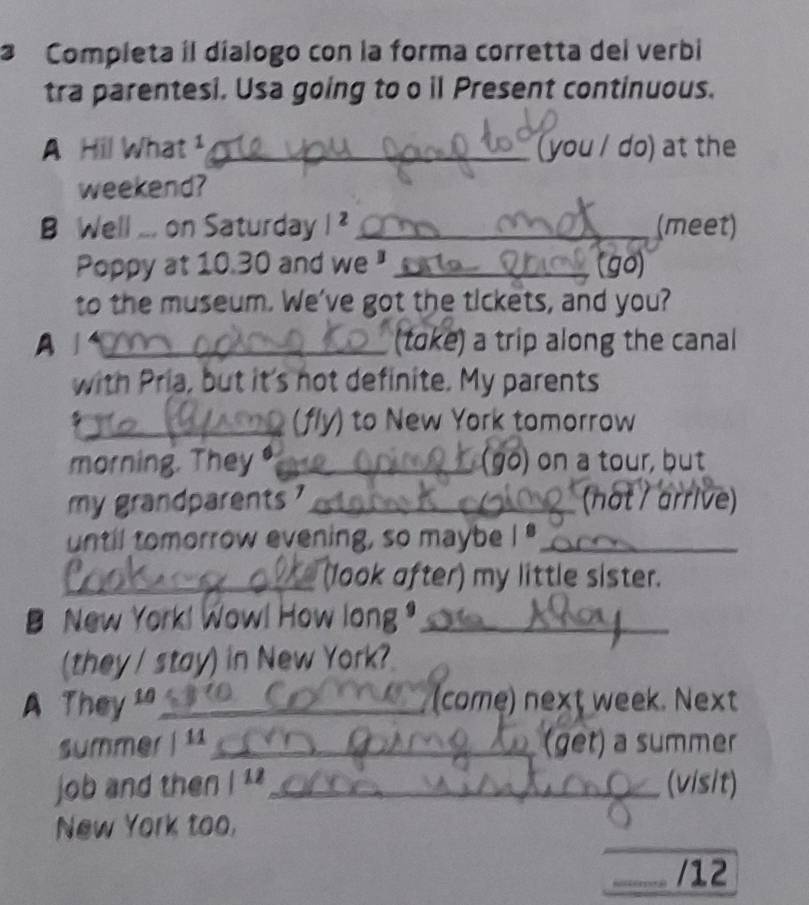 3 Completa il dialogo con la forma corretta dei verbi
tra parentesi. Usa going to o il Present continuous.
A Hi! What ¹ are you going to do (you / do) at the
weekend?
B Well ... on Saturday I ² am (meet)
Poppy at 10.30 and we ³ going (go)
to the museum. We've got the tickets, and you?
A I ⁴ am going to take (take) a trip along the canal
with Pria, but it's not definite. My parents
⁵ are (fly) to New York tomorrow
morning. They ⁶ are going to (go) on a tour, but
my grandparents ⁷ going to (not / arrive)
until tomorrow evening, so maybe I ⁸ am
(look after) my little sister.
B New York! Wow! How long ⁹ are
(they / stay) in New York?
A They ¹⁰ (come) next week. Next
summer I ¹¹ am going to get (get) a summer
job and then I ¹² am visiting (visit)
New York too.
/12